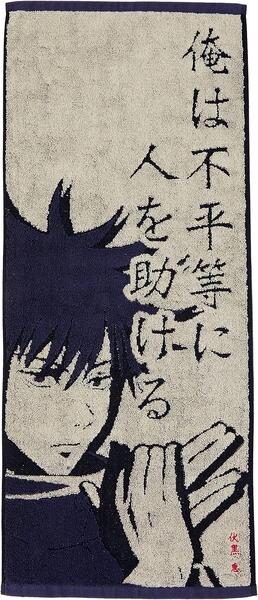 俺は不平等に
人を助ける
伏黒 恵